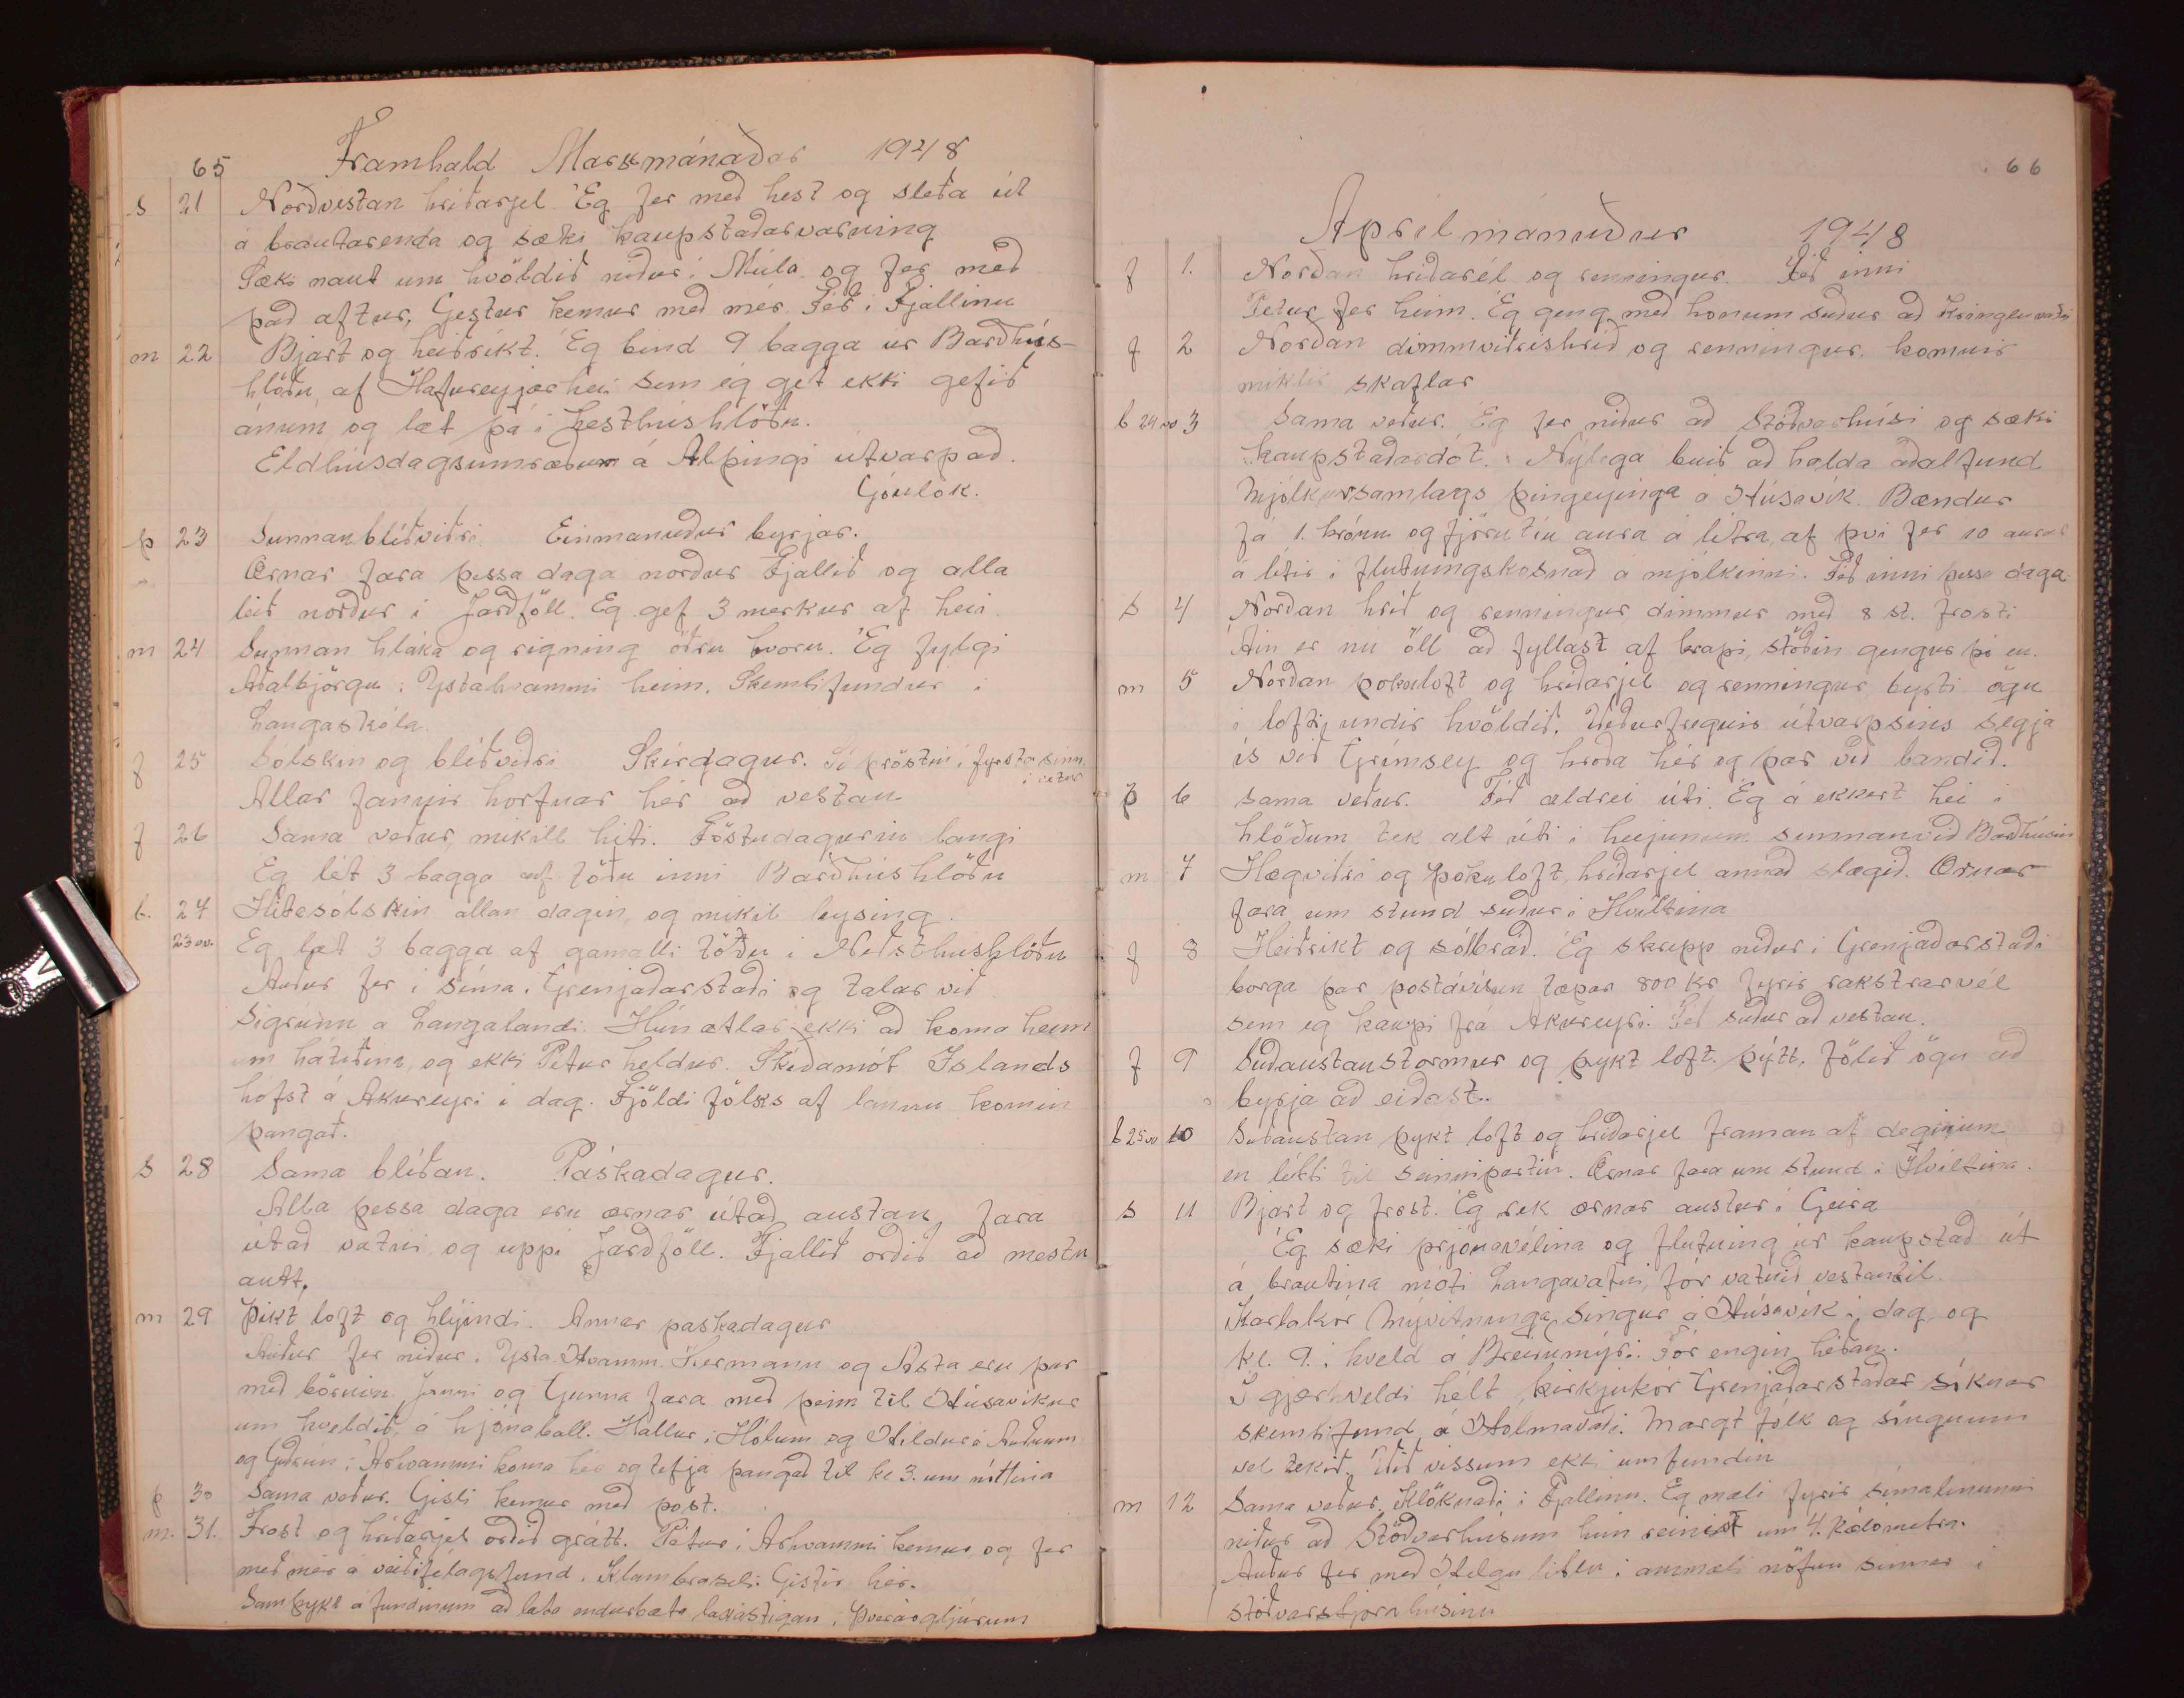 65 Framhald Marsmánaðar 1948
s 21 Norðvistan hríðarjel Ég fer með hest og sleða út
á brautarenda og sæki kaupstaðarvarning
Sæki naut um kvöldið niður í Múla og fer með
það aftur, Gestur kemur með mér Féð í Fjallinu
m 22 Bjart og heiðríkt. Ég bind 9 bagga úr Barðhús-
hlöðu, af Hafureyjar hei sem ég get ekki gefið
ánum og læt þá í hesthúshlöðu.
Eldhúsdagsumræður á Alþingi útvarpað.
Góulok.
þ 23 Sunnan blíðviðri Einmanuður byrjar.
Ærnar fara þessa daga norður Fjallið og alla
leið norður í Jarðföll. Ég gef 3 merkur af hei.
m 24 Sunnan hláka og rigning öðru hvoru. Ég fylgi
Aðalbjörgu í Ystahvammi heim. Skemtifundur í
Laugaskóla
f 25 Sólskin og blíðviðri Skírdagur. Sé þröstin í fyrsta sinn
í vetur
Allar fannir horfnar hér að vestan
f 26 Sama veður, mikill hiti. Föstudagurin langi
Ég lét 3 bagga af töðu inni Barðhúshlöðu
l. 27 Hitesólskin allan dagin, og mikil leysing.
23 vv. Ég læt 3 bagga af gamalli töðu í Neðsthúshlöðu
Auður fer í síma í Grenjaðarstaði og talar við
Sigrúnu á Laugalandi. Hún ætlar ekki að koma heim
um hátíðina, og ekki Pétur heldur. Skíðamót Islands
hofst á Akureyri í dag. Fjöldi fólks af lannu komin
þangað.
s 28 Sama blíðan. Páskadagur.
Alla þessa daga eru ærnar útað austan, fara
útað vatni og uppi Jarðföll. Fjallið orðið að mestu
autt.
m 29 Þikt loft og hlýindi. Annar paskadagur
Auður fer niður í Ysta-Hvamm. Hermann og Asta eru þar
með börnin. Jonni og Gunna fara með þeim til Húsavíkur
um kveldið, á hjónaball. Hallur í Hólum og Hildur á Auðnum
og Guðrún í Arhvammi koma hér og tefja þangað til kl 3. um nóttina
þ 30 Sama veður. Gisli kemur með post.
m. 31. Frost og hríðarjel orðið grátt. Pétur í Arhvammi kemur og fer
með mér á veiðifélagsfund í Klambraseli. Gistir hér.
Samþykt á fundinum að lata endurbæta laxastigan í Þverárgljúrum
66
Apríl mánuður 1948
f 1. Norðan hríðarél og renningur. Féð inni
Petur fer heim. Ég geng með honum suður að
f 2 Norðan dimmviðrishríð og renningur, komnir
miklir skaflar
l 24 vv 3 Sama veður. Ég fer niður að Stöðvarhúsi og sæki
kaupstaðardót. Nýlega buið að halda aðalfund
Mjólkursamlags þingeyinga á Húsavík. Bændur
fá 1. krónu og fjörutíu aura á lítra, af því fer 10 aurar
á lítir í flutningskosnað á mjólkinni. Féð inni þessa daga.
s 4 Norðan hríð og renningur dimmur með 8 st. frosti
Áin er nu öll að fyllast af krapi, stöðin gengur þó en.
m 5 Norðan þokuloft og hríðarjel og renningur, byrti ögn
í lofti undir kvöldið. Veðurfregnir útvarpsins segja
ís við Grímsey og hroða hér og þar við landið.
þ 6 Sama veður. Féð aldrei úti. Ég á ekkert hei í
hlöðum tek alt úti í heijunum sunnanvið Barðhúsin
m 7 Hægviðri og þokuloft, hríðarjel annað slagið. Ærnar
fara um stund suður í Hvíltina
f 8 Heiðríkt og sólbráð. Ég skrepp niður í Grenjaðarstaði
borga þar postávísun tæpar 800 kr fyrir rakstrarvél
sem ég kaupi frá Akureyri. Féð suður að vestan.
f 9 Suðaustanstormur og þykt loft. þýtt. fölið ögn að
byrja að eiðast..
l 25 vv 10 Suðaustan þykt loft og hriðarjel framan af deginum
en létti til seinnipartin. Ærnar fara um stund í Hvíltina.
s 11 Bjart og frost. Ég rek ærnar austur í Geira
Ég sæki prjónavélina og flutning úr kaupstað út
á brautina móti Langavatni, fór vatnið vestantil.
Karlakór Mývitnunga singur á Húsavík í dag, og
kl. 9. í kveld á Breiðumýri. Fór engin héðan.
Í gjærkveldi hélt kirkjukór Grenjaðarstaðar síknar
skemtifund á Holmavaði. Margt fólk og síngnum
vel tekið. Við vissum ekki um fundin
m 12 Sama veður. Klöknaði í Fjallinu. Eg mæli fyrir símalínunni
niður að Stöðvarhúsum hún reinist um 4. kílómetra.
Auður fer með Helgu litlu í ammæli nöfnu sinnar í
stöðvarstjorahúsinu